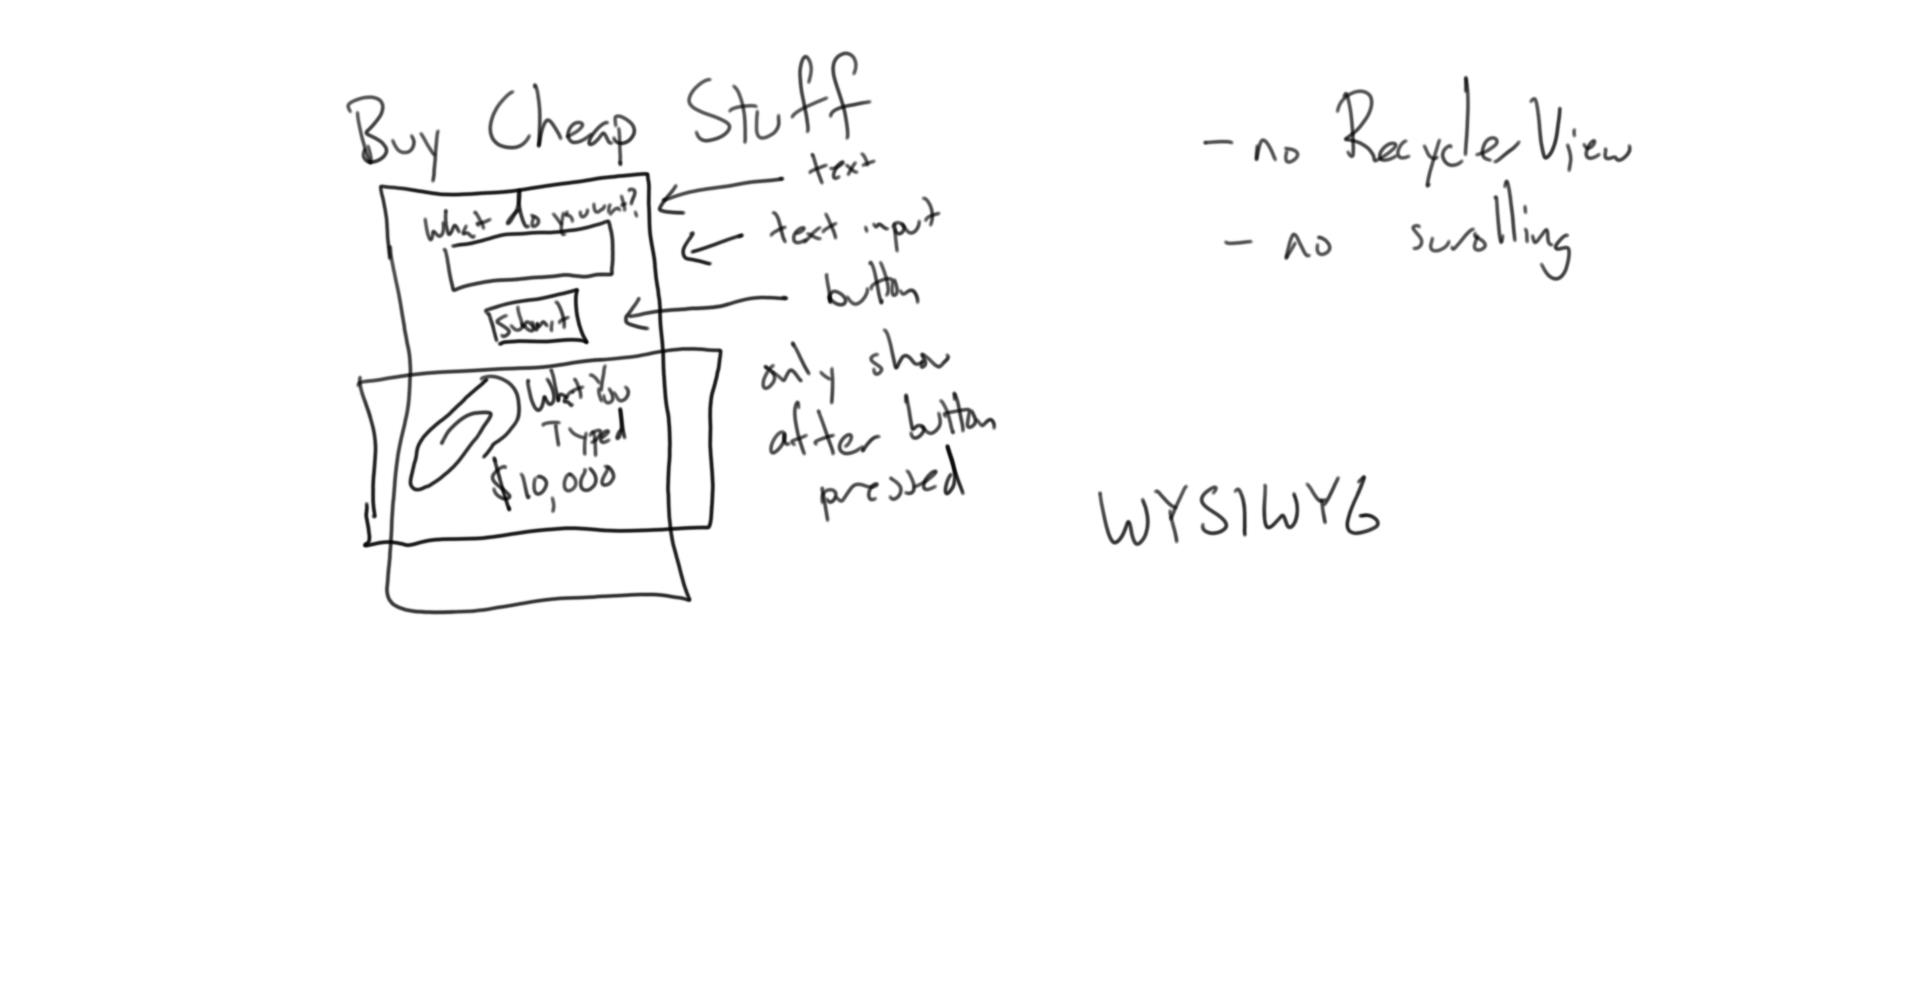 Buy Cheap Stuff
What do you want?
Submit
What You
Typed
$10,000
text
text input
button
only show
after button
pressed
- no RecyclerView
- no scrolling
WYSIWYG